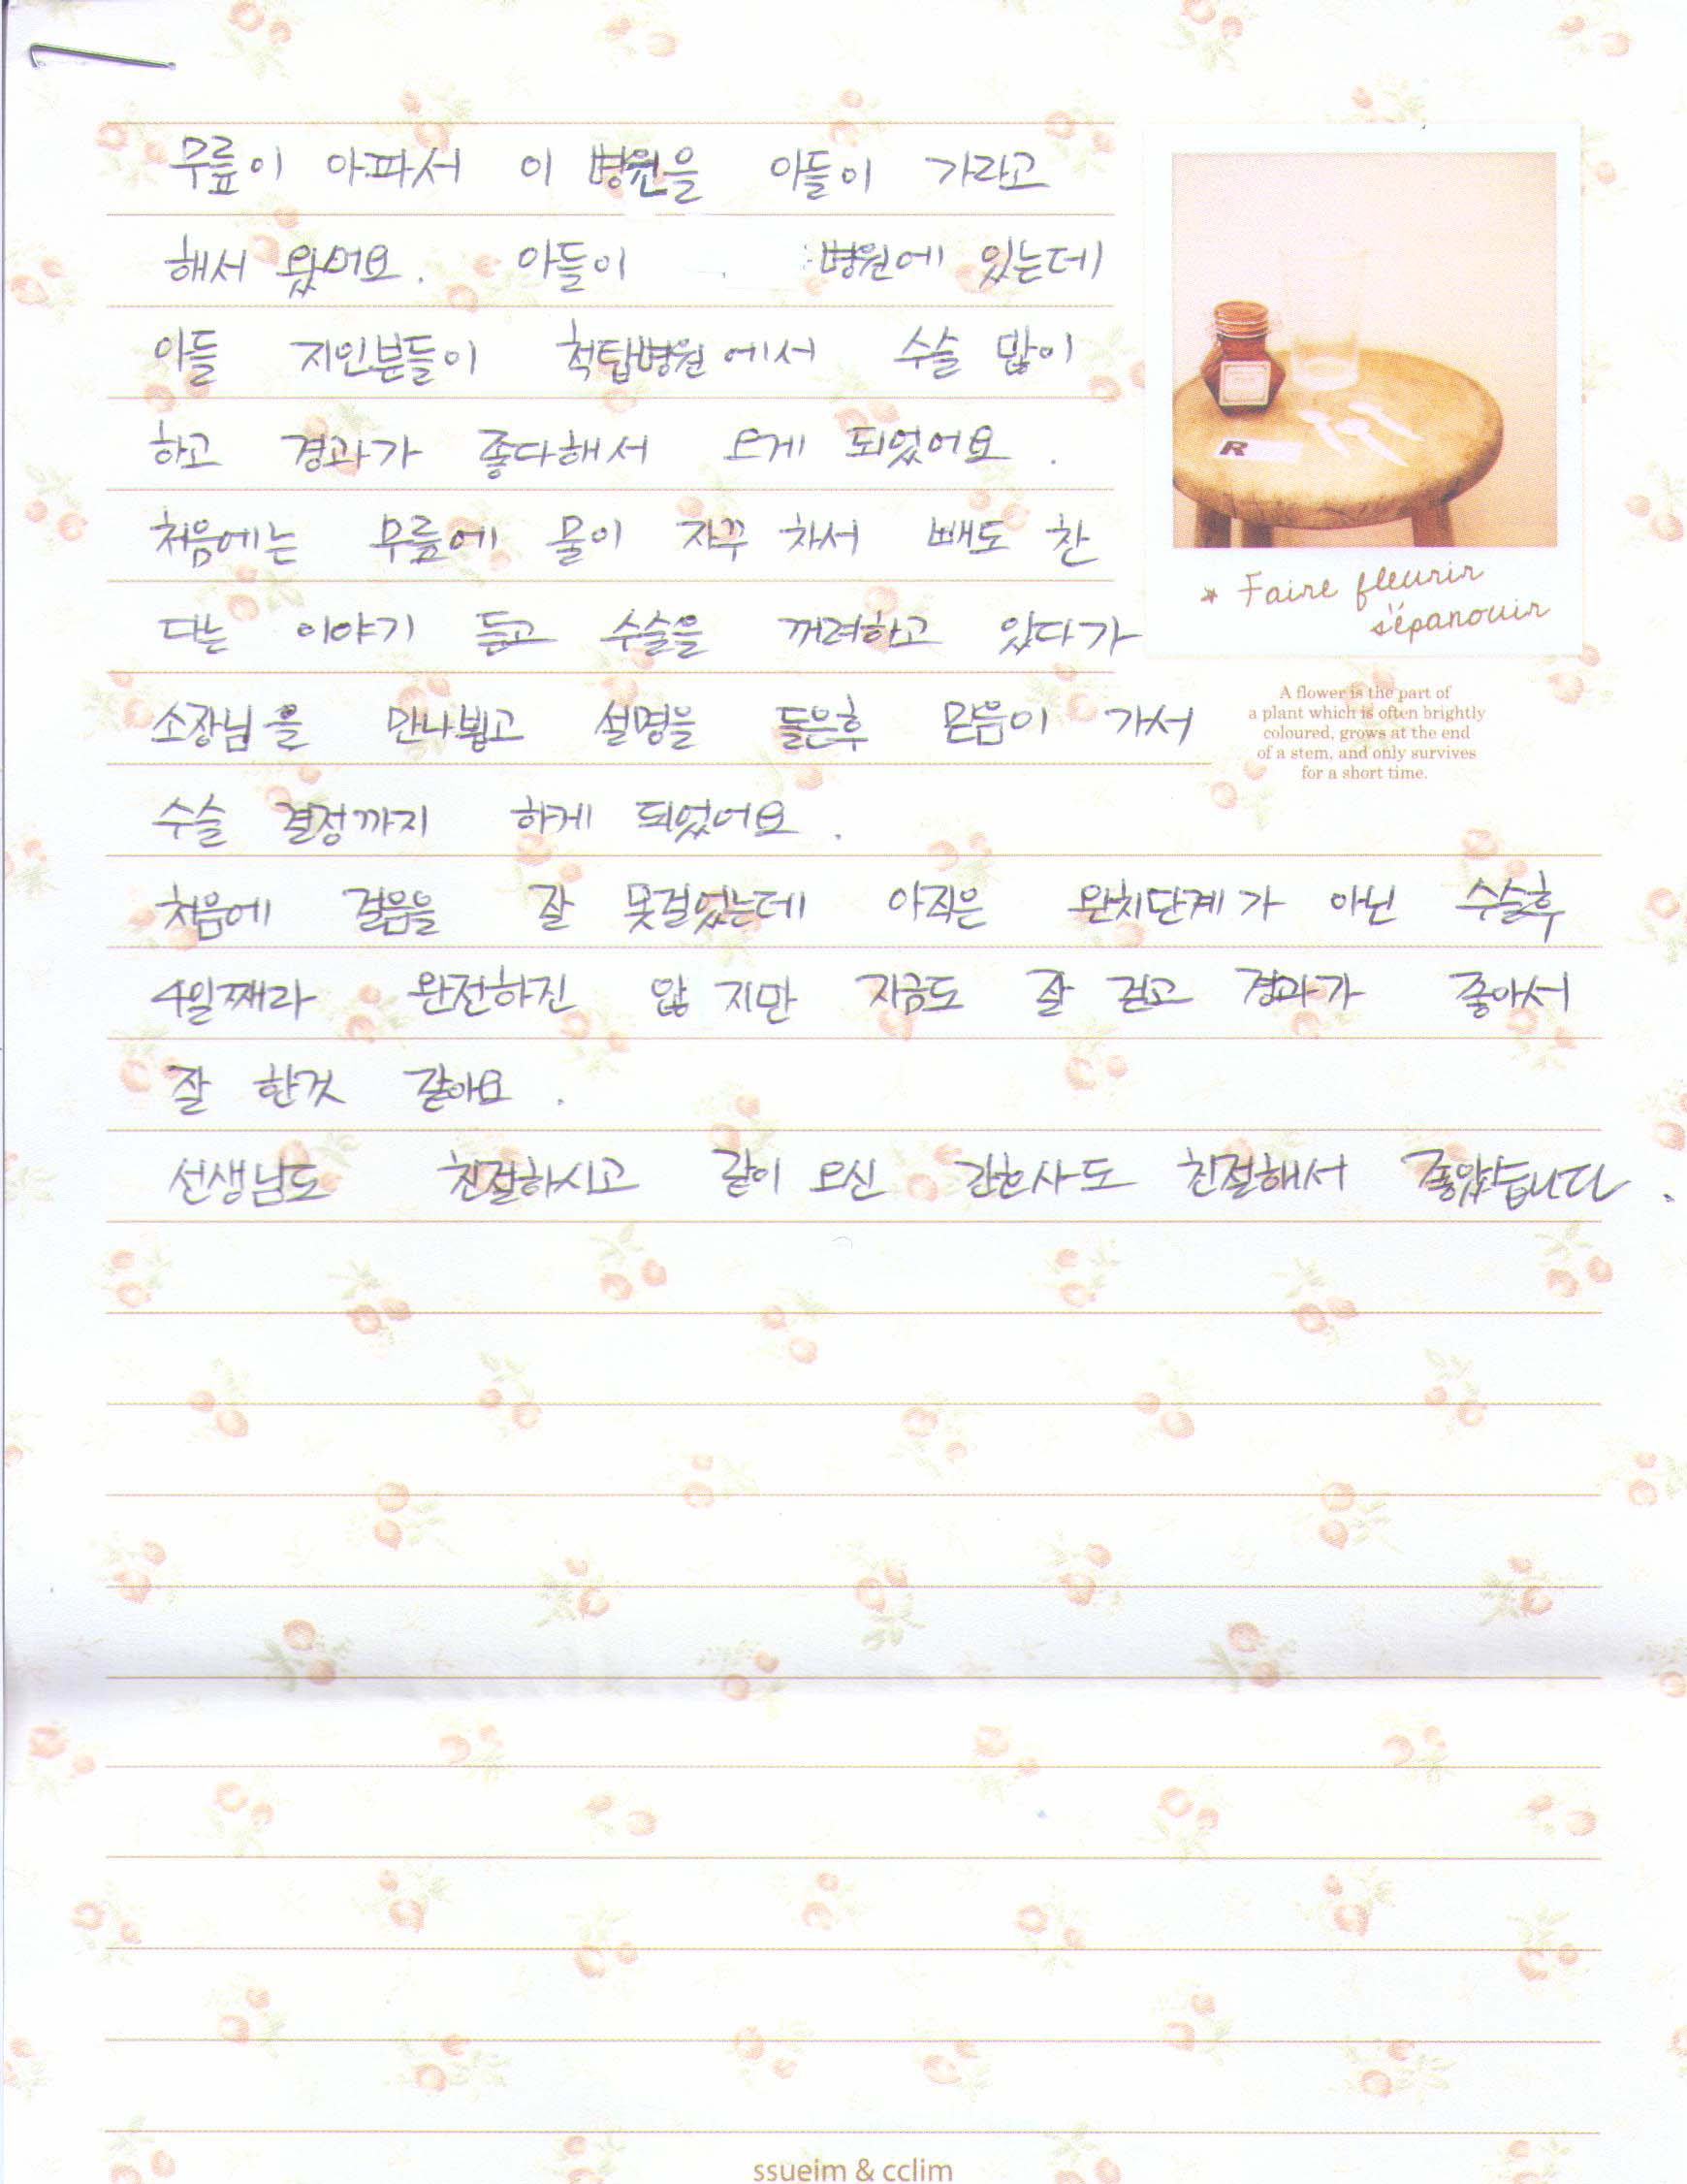 무릎이 아파서 이 병원을 아들이 가라고
해서 왔어요. 아들이 병원에 있는데
아들 지인분들이 척탑병원에서 수술 많이
하고 경과가 좋다해서 오게 되었어요.
처음에는 무릎에 물이 자꾸 차서 빼도 찬
다는 이야기 듣고 수술을 꺼려하고 있다가
소장님을 만나뵙고 설명을 들은후 믿음이 가서
수술 결정까지 하게 되었어요.
처음에 걸음을 잘 못걸었는데 아직은 완치단계가 아닌 수술후
4일째라 완전하진 않지만 지금도 잘 걷고 경과가 좋아서
잘 한것 같아요.
선생님도 친절하시고 같이 오신 간호사도 친절해서 좋았습니다.
* Faire fleurir
s'épanouir
A flower is the part of
a plant which is often brightly
coloured, grows at the end
of a stem, and only survives
for a short time.
R
ssueim & cclim